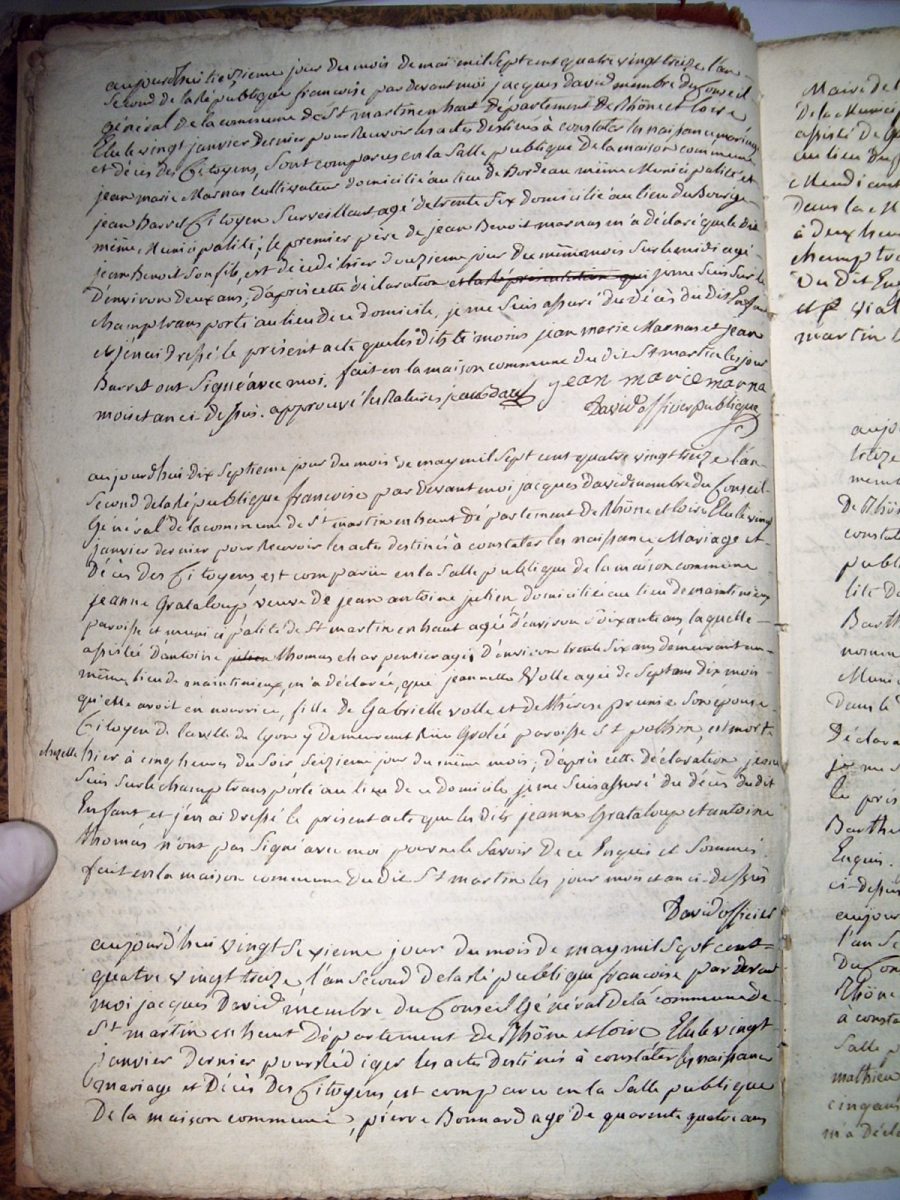 aujourd'hui treizieme jour du mois de mai mil Sept cent quatre vingt treize l'an
Second de la République francoise par devant moi jacques david membre du Conseil
général de la commune de St martin en haut département de Rhône et loire
Elu le vingt janvier dernier pour Recevoir les actes destinés à constater les naissance mariage
et décès des Citoyens, Sont comparus en la Salle publique de la maison commune
jean marie Marnas Cultivateur domicilié au lieu de Bordeau même Municipalité et
jean Barret Citoyen Surveillant agé de trente Six domicilié au lieu du Bourg
même Municipalité; le premier père de jean Benoit marnas m'a déclaré que le dit
jean Benoit Son fils, est décédé hier douzieme jour du même mois Sur le midi agé
d'environ deux ans; d'après cette déclaration et la présentation qui je me Suis Sur le
champ transporté au lieu de ce domicile, je me Suis assuré du décès du dit Enfant
et j'en ai dressé le présent acte que les dits témoins jean marie Marnas et jean
Barret ont Signé avec moi. fait en la maison commune du dit St martin les jour
mois et an ci dessus. approuvé les Ratures jean marie marna
David officier publique
aujourd'hui dix Septieme jour du mois de may mil Sept cent quatre vingt treize l'an
Second de la République francoise par devant moi jacques david membre du Conseil
Général de la commune de St martin en haut Département de Rhône et loire Elu le vingt
janvier dernier pour Recevoir les actes destinés à constater les naissance Mariage et
Décès Des Citoyens est comparue en la Salle publique de la maison commune
jeanne Grataloup veuve de jean antoine julien domicilié au lieu de maintinieux
paroisse et municipalité de St martin en haut agée d'environ Soixante ans laquelle
assistée d'antoine julien thomas charpentier agé d'environ trente Six ans demeurant au
même lieu de maintinieux, m'a déclarée, que jeannette Volle agée de Sept ans dix mois
qu'elle avoit en nourrice, fille de Gabrielle volle et de thérese prunie Son épouse
Citoyen de la ville de Lyon y demeurant Rue Grolée paroisse St pothin, est mort
chezelle
hier à cinq heures du Soir Seizieme jour du même mois; d'après cette déclaration je me
Suis Sur le champ transporté au lieu de ce domicile je me Suis assuré du décès du dit
Enfant et j'en ai dressé le présent acte que les dits jeanne Grataloup et antoine
thomas n'ont pas Signé avec moi pour ne le Savoir De ce Enquis et Sommés
fait en la maison commune du dit St martin les jour mois et an ci-dessus
David officier
aujourd'hui vingt Sixieme jour du mois de may mil Sept cent
quatre vingt treize l'an Second de la République francoise par devant
moi jacques David membre du Conseil Général de la commune de
St martin en haut Département de Rhône et loire Elu le vingt
janvier dernier pour Rédiger les actes destinés à constater les naissance
mariage et Décès Des Citoyens est comparu en la Salle publique
De la maison commune, pierre Bonnard agé de quarente quatre ans
Maire de l
De la Munici
assisté de
au lieu du
Mendiant
dans la M
à deux heu
champ tra
Du dit En
et Vial
martin l
aujo
treize
memb
De Rhôn
constat
publi
lité d
Barth
nomm
Munic
dans le d
Déclara
je me S
le prés
Barthe
Enquis
ci-dessus
aujour
l'an Se
Du Con
Rhône
a consta
Salle p
mathieu
cinquan
m'a décla